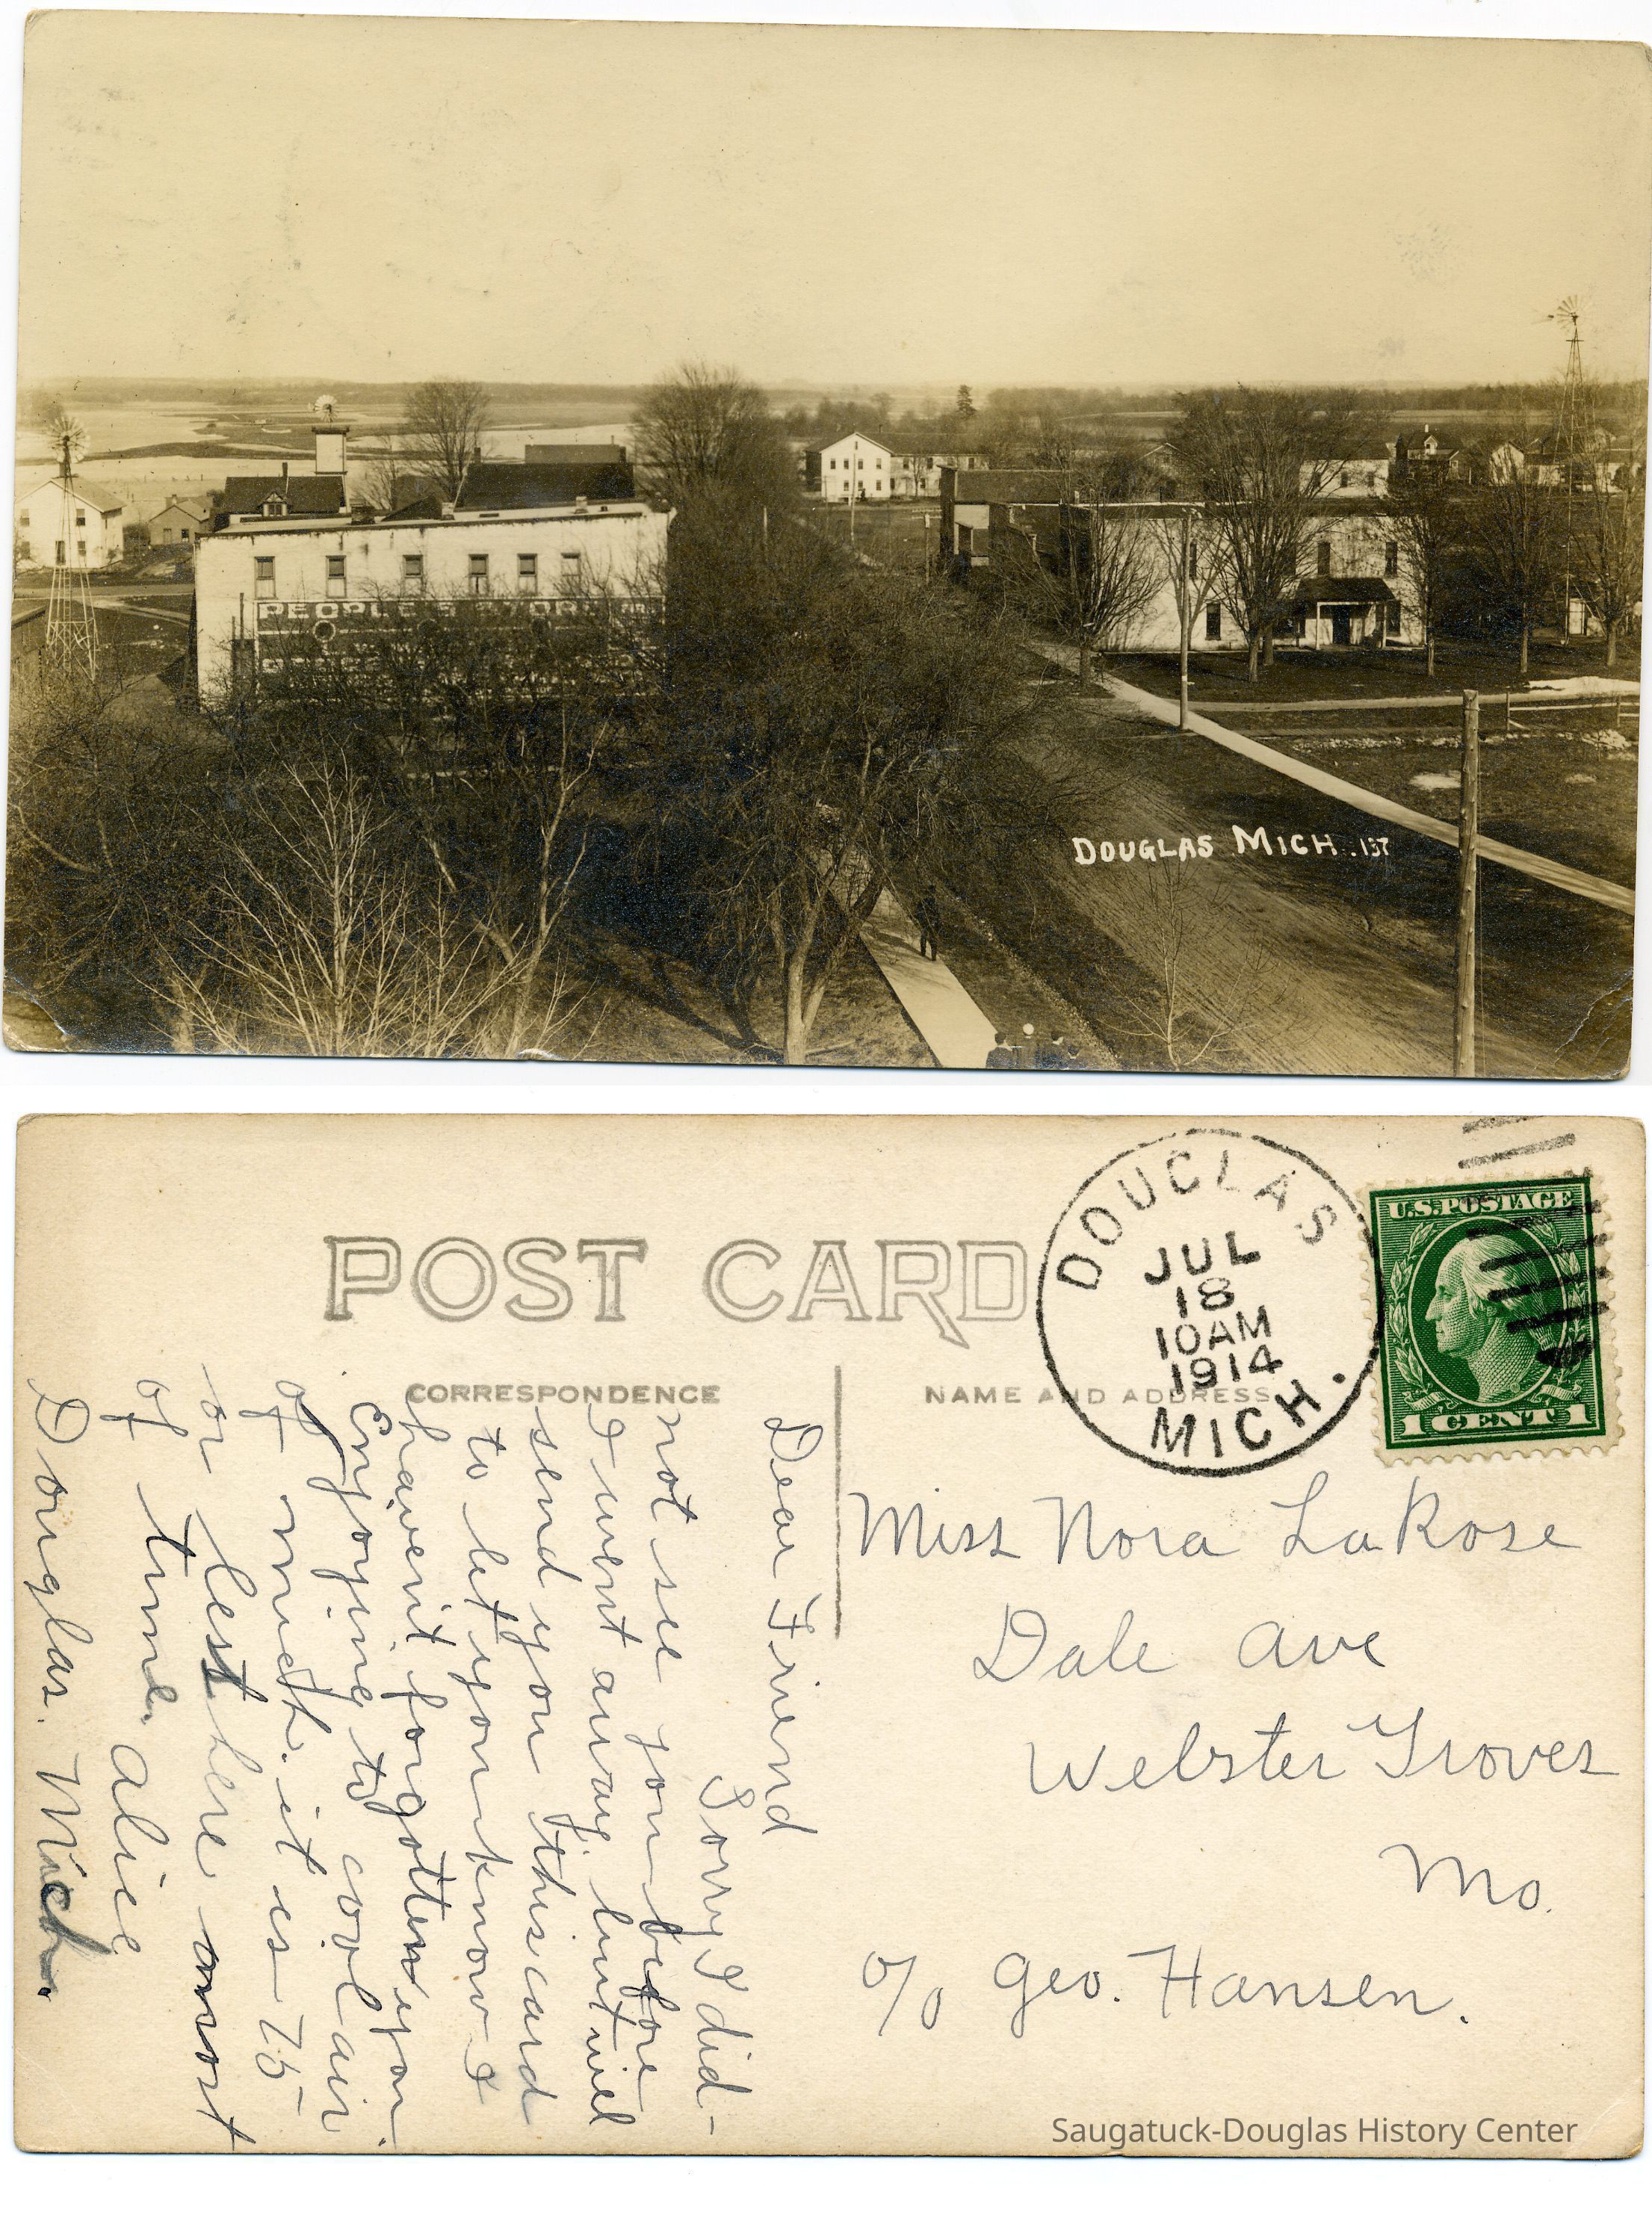 PEOPLE'S STORE
DOUGLAS MICH. 137
POST CARD
CORRESPONDENCE
NAME AND ADDRESS
DOUGLAS
JUL
18
10AM
1914
MICH.
U.S. POSTAGE
1 CENT 1
Dear Friend
Sorry I did-
not see you before
I went away, but will
send you this card
to let you know I
havent forgotten you.
Enjoying to cool air
of mich. it is 75
or less here most
of time. Alice
Douglas. Mich.
Miss Nora LaRose
Dale Ave
Webster Groves
Mo.
c/o Geo. Hansen.
Saugatuck-Douglas History Center